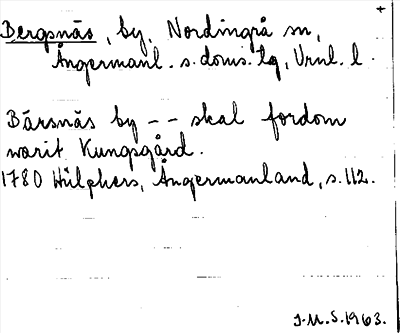 +
Bergsnäs, by, Nordingrå sn,
Ångermanl. s. doms. lg, Vrnl. l.
Bärsnäs by - - skal fordom
warit Kungsgård.
1780 Hülphers, Ångermanland, s. 112.
J.M.S. 1963.